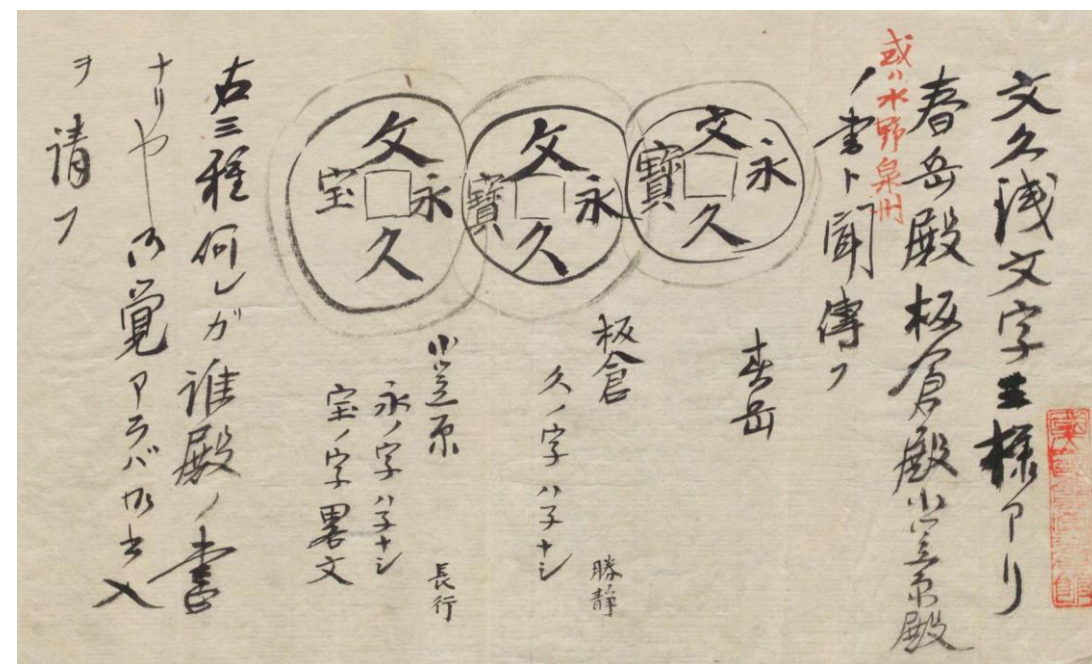 文久銭文字三様アリ
春岳殿板倉殿小笠原殿
或ハ水野泉州
ノ書ト聞傳フ
文久永寳
春岳
文久永寳
板倉 勝静
久ノ字ハ子ナシ
文久永宝
小笠原 長行
永ノ字ハ子ナシ
宝ノ字畧文
右三種何レガ誰殿ノ書
ナリヤ御覚アラバ御書入
ヲ請フ